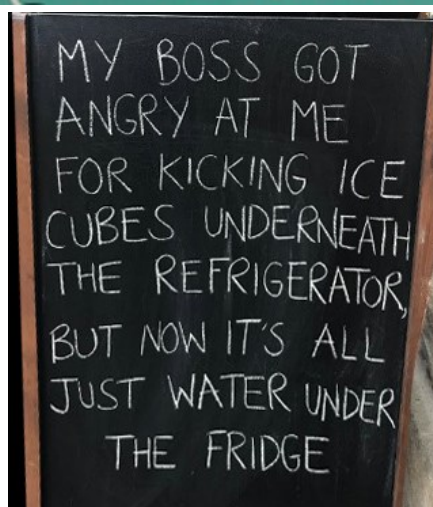 MY BOSS GOT
ANGRY AT ME
FOR KICKING ICE
CUBES UNDERNEATH
THE REFRIGERATOR,
BUT NOW IT'S ALL
JUST WATER UNDER
THE FRIDGE